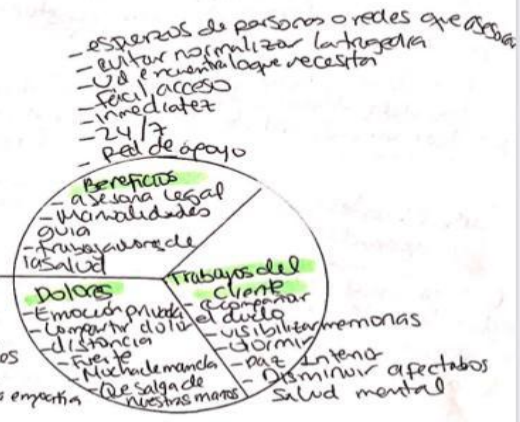 - esfuerzos de personas o redes que asesora
- evitar normalizar la tragedia
- Ud encuentra lo que necesita
- Fácil acceso
- inmediatez
- 24/7
- Red de apoyo
Beneficios
- asesoria legal
- Manualidades
guia
- trabajadores de
la salud
Dolores
- Emoción privada
- Compartir dolor
- distancia
- Fuerte
- Mucha demanda
- Que salga de
nuestras manos
os
empatia
Trabajos del
Cliente
- acompañar
el duelo
- visibilizar memorias
- dormir
- paz interior
- Disminuir afectados
salud mental